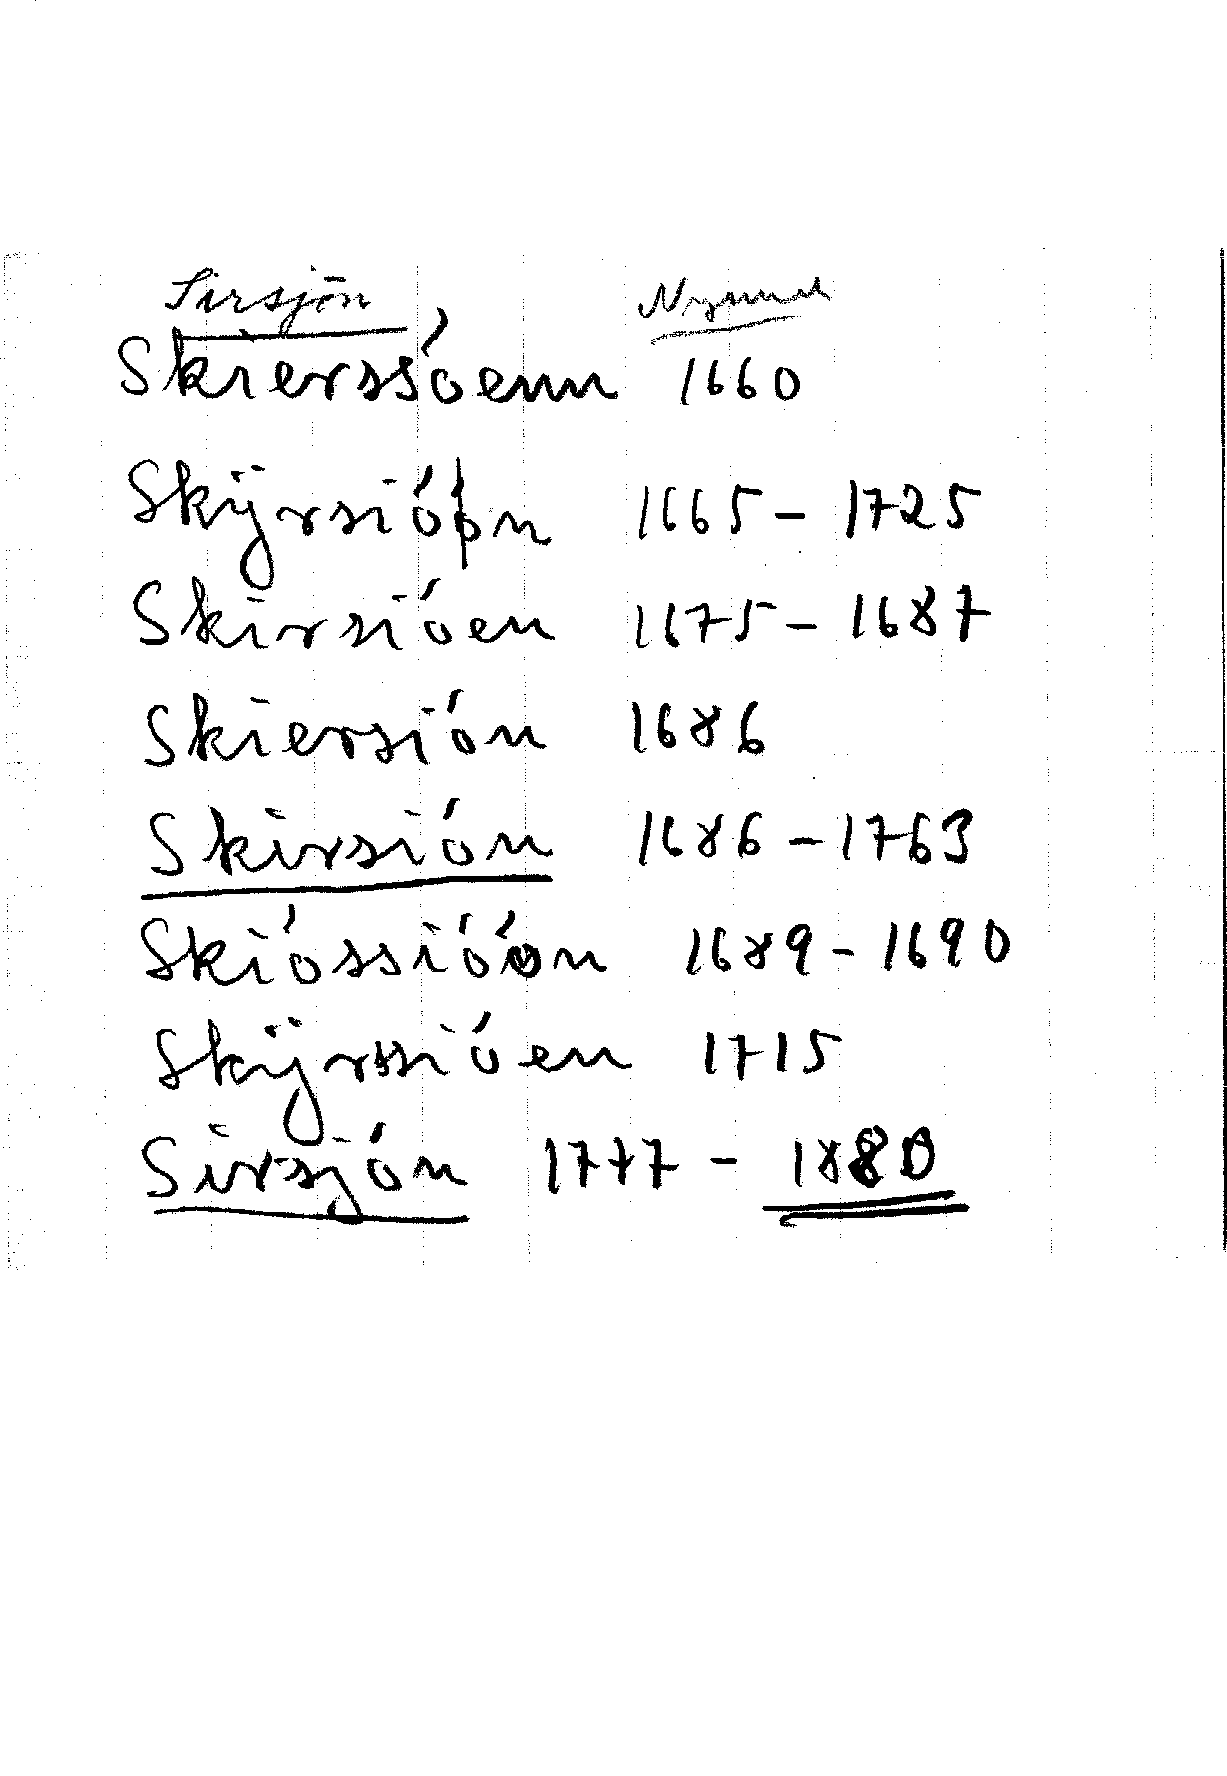 Sirsjön Nymark
Skierssóenn 1660
Skÿrsióón 1665 - 1725
Skirsióen 1675 - 1687
Skiersión 1686
Skirsión 1686 - 1763
Skióssióón 1689 - 1690
Skÿrssióen 1715
Sirsjón 1777 - 1880